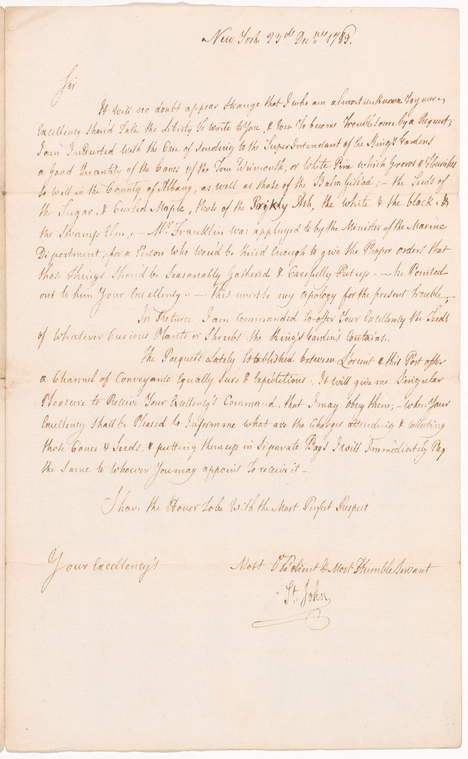 New York 23d Decbre 1783.
Sir
It will no doubt appear strange that I who am almost unknown to your
Excellency shou'd take the liberty to write to You, & even to become troublesome by a Request,
I am Instructed with the Care of sending to the Superintendant of the King's Gardens
a Good Quantity of the Cones of the True Weimouth, or White Pine which Grows & flourishes
so well in the County of Albany, as well as those of the Balm Gilead; — the Seeds of
the Sugar, & Curled Maple, those of the Prikly Ash, the white & the black, &
the Swamp Elm, — Mr. Franklin was applyed to by the Minister of the Marine
Department, for a Person who wou'd be kind enough to give the Proper orders that
those Things Shou'd be seasonally Gathered & Carefully Put up — he Pointed
out to him Your Excellency — this must be my apology for the present trouble,
In Return I am commanded to offer Your Excellency the Seeds
of Whatever Curious Plants or Shrubs the King's Gardens Contains.
The Paquets Lately Established between Lorient & this Port offer
a Channel of Conveyance Equally Sure & Expeditious, It will give me Singular
Pleasure to Receive Your Excellency's Command, that I may obey them; — when Your
Excellency shall be Pleased to Inform me what are the Charges attending & collecting
those Cones & Seeds, & putting them up in Separate Bags I will Immediately Pay
the same to Whoever You may appoint To receive it —
I have the Honor to be With the Most Perfect Respect
Your Excellency's Most Obedient & Most Humble Servant
St. John